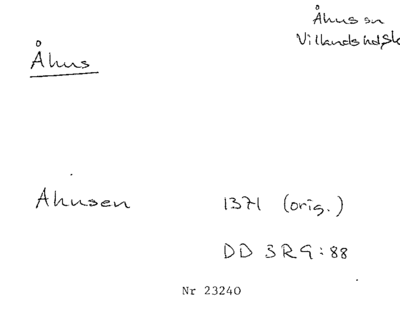 Åhus sn
Villands hd, Sk
Åhus
Ahusen 1371 (orig.)
DD 3 R 9 : 88
Nr 23240